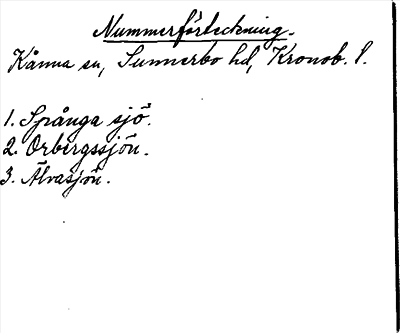 Nummerförteckning.
Kånna sn, Sunnerbo hd, Kronob. l.
1. Språnga sjö.
2. Örbergssjön.
3. Älvasjön.